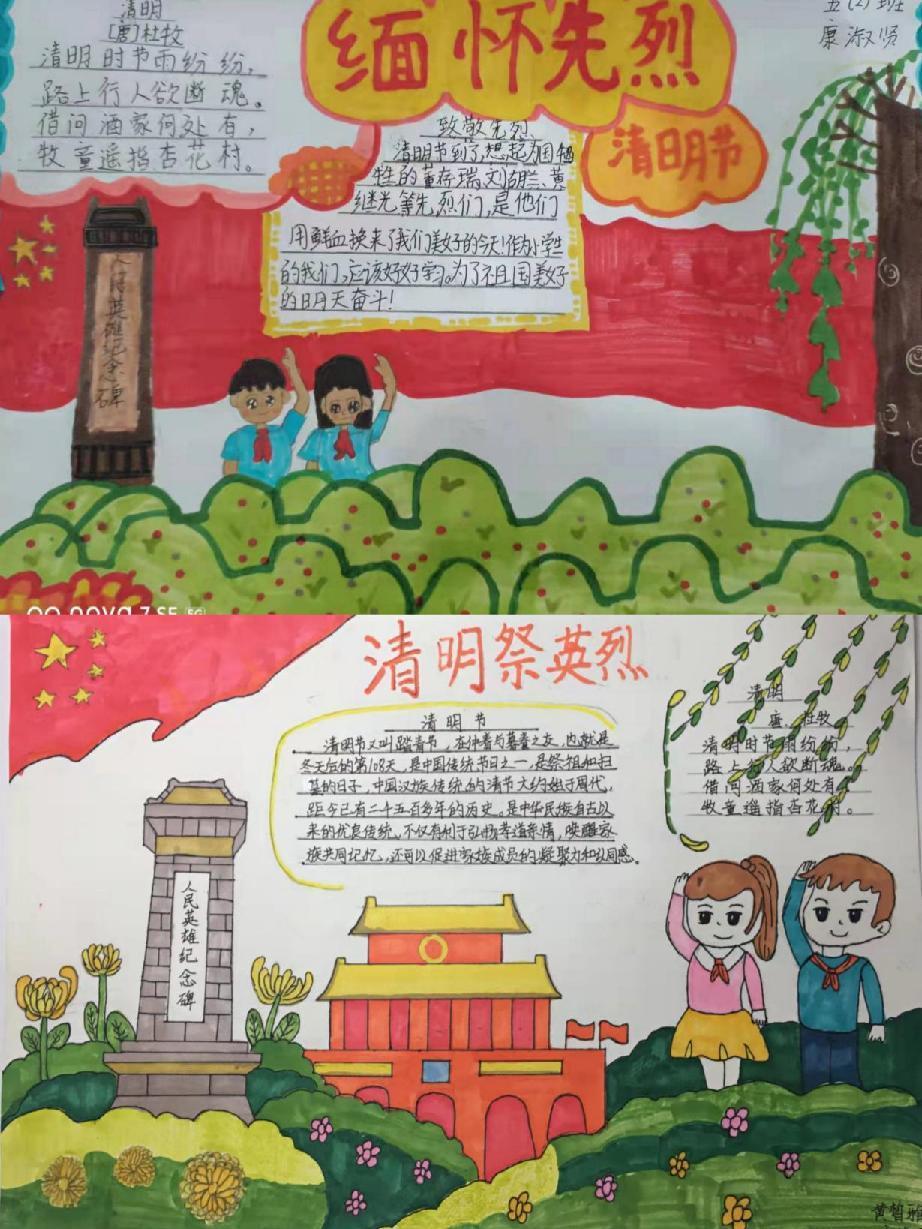 清明
[唐]杜牧
清明时节雨纷纷，
路上行人欲断魂。
借问酒家何处有，
牧童遥指杏花村。
缅怀先烈
五(2)班
康淑贤
清明节
致敬先烈
清明节到了，想起为国牺
牲的董存瑞、刘胡兰、黄
继光等先烈们，是他们
用鲜血换来了我们美好的今天！作为小学生
的我们，应该好好学习。为了祖国美好
的明天奋斗！
人民英雄纪念碑
清明祭英烈
清明节
清明节又叫踏青节，在仲春与暮春之交，也就是
冬天后的第108天，是中国传统节日之一，是祭祖和扫
墓的日子，中国汉族传统的清节大约始于周代，
距今已有二千五百多年的历史。是中华民族自古以
来的优良传统，不仅有利于弘扬孝道亲情，唤醒家
族共同记忆，还可以促进家族成员的凝聚力和认同感。
清明
唐、杜牧
清明时节雨纷纷，
路上行人欲断魂。
借问酒家何处有
牧童遥指杏花村。
人民英雄纪念碑